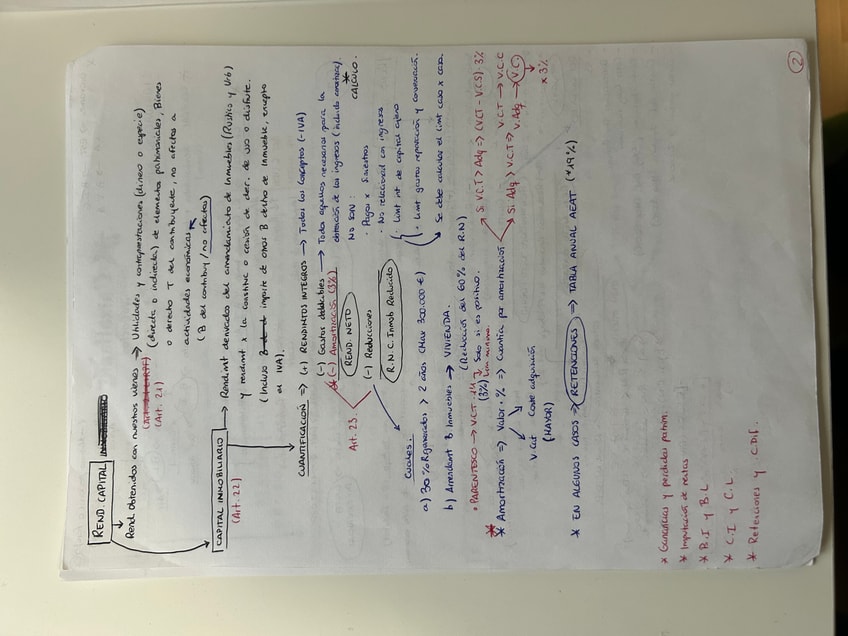 REND. CAPITAL
Rend obtenidos con nuestros bienes → Utilidades y contraprestaciones (dinero o especie)
(directa o indirecta) de elementos patrimoniales, Bienes
(Art. 21)
o derecho T del contribuyente, no afectos a
actividades económicas
(B del contribuy / no afectos)
CAPITAL INMOBILIARIO → Rendimt derivados del arrendamiento de Inmuebles (Rústico y Urb)
(Art. 22)
y rendimt x la constituc o cesión de der. de uso o disfrute.
(Incluso importe de otros B dectro de Inmueble, excepto
el IVA).
CUANTIFICACIÓN ⇒ (+) RENDIMTOS INTEGROS → Todos los Conceptos (-IVA)
(-) Gastos deducibles → Todos aquellos necesarios para la
obtención de los ingresos (incluido amortizac).
(-) Amortización (3%)
NO SON:
* CÁLCULO.
Art. 23.
REND NETO
· Pagos x Siniestros
· No relacionad con ingresos
(-) Reducciones
· Limt int de capital ajeno
R.N.C. Inmob Reducido
· Limt gastos reparación y conservación.
↳ Se debe calcular el limt caso x caso.
Cuales.
a) 30% R.generados > 2 años (Max 300.000€)
b) Arrendamt B Inmuebles → VIVIENDA.
(Reducción del 60% del R.N)
Solo si es positivo.
• PARENTESCO → V.CT
(3%)
* Amortización ⇒ Valor . % ⇒ Cuantía por amortización
Si V.C.T > Adq ⇒ (V.CT - V.CS). 3%
Si Adq > V.C.T ⇒ V.CT → V.C.C
V.Adq → V.C
x 3%
V. Cat Coste adquisición
(MAYOR)
* EN ALGUNOS CASOS ⇒ RETENCIONES ⇒ TABLA ANUAL AEAT (*19%)
* Ganancias y perdidas patrim.
* Imputación de rentas
* B.I y B.L
* C.I y C.L
* Retenciones y C.Dif.
2